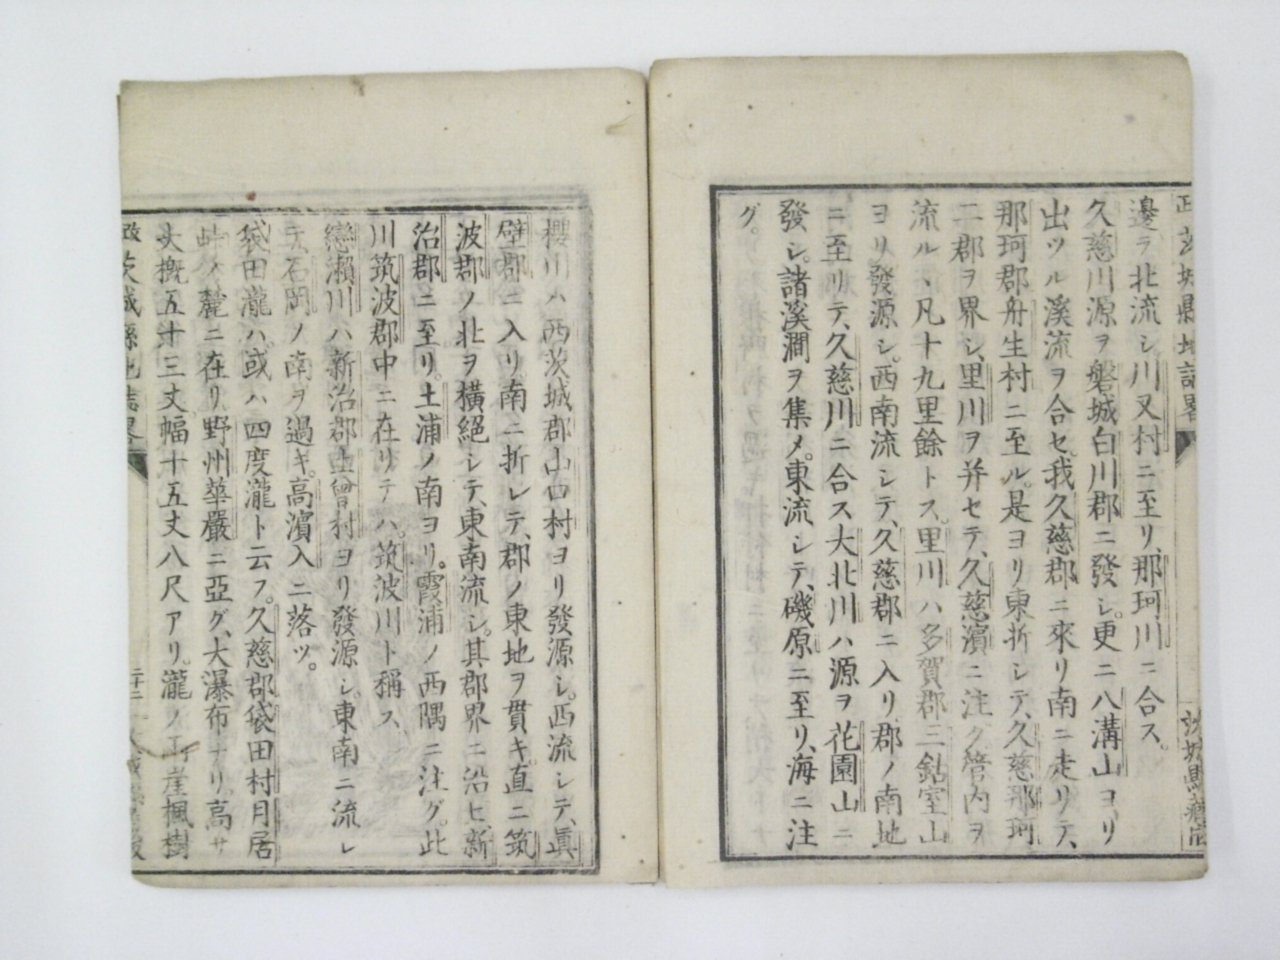 邊ヲ北流シ。川又村ニ至リ、那珂川ニ合ス。
久慈川源ヲ磐城白川郡ニ發シ。更ニ八溝山ヨリ
出ツル溪流ヲ合セ。我久慈郡ニ來リ南ニ走リテ、
那珂郡舟生村ニ至ル。是ヨリ東折シテ、久慈那珂
二郡ヲ界シ、里川ヲ并セテ、久慈濱ニ注ク管内ヲ
流ル丶凡十九里餘トス。里川ハ多賀郡三鈷室山
ヨリ發源シ。西南流シテ、久慈郡ニ入リ、郡ノ南地
ニ至リテ、久慈川ニ合ス大北川ハ源ヲ花園山ニ
發シ。諸溪澗ヲ集メ。東流シテ、磯原ニ至リ、海ニ注
グ。
櫻川ハ西茨城郡山口村ヨリ發源シ。西流シテ、眞
壁郡ニ入リ。南ニ折レテ、郡ノ東地ヲ貫キ。直ニ筑
波郡ノ北ヲ橫絕シテ、東南流シ。其郡界ニ沿ヒ、新
治郡ニ至リ。土浦ノ南ヨリ。霞浦ノ西隅ニ注グ。此
川筑波郡中ニ在リテハ。筑波川ト稱ス、
戀瀨川ハ新治郡 曾村ヨリ發源シ。東南ニ流レ
テ、石岡ノ南ヲ過ギ。高濱入ニ落ツ。
袋田瀧ハ。或ハ四度瀧ト云フ。久慈郡袋田村月居
峠ノ麓ニ在リ、野州華嚴ニ亞グ、大瀑布ナリ。高サ
大概五十三丈。幅十五丈八尺アリ。瀧ノ 崖楓樹
茨城縣地誌畧
二十二